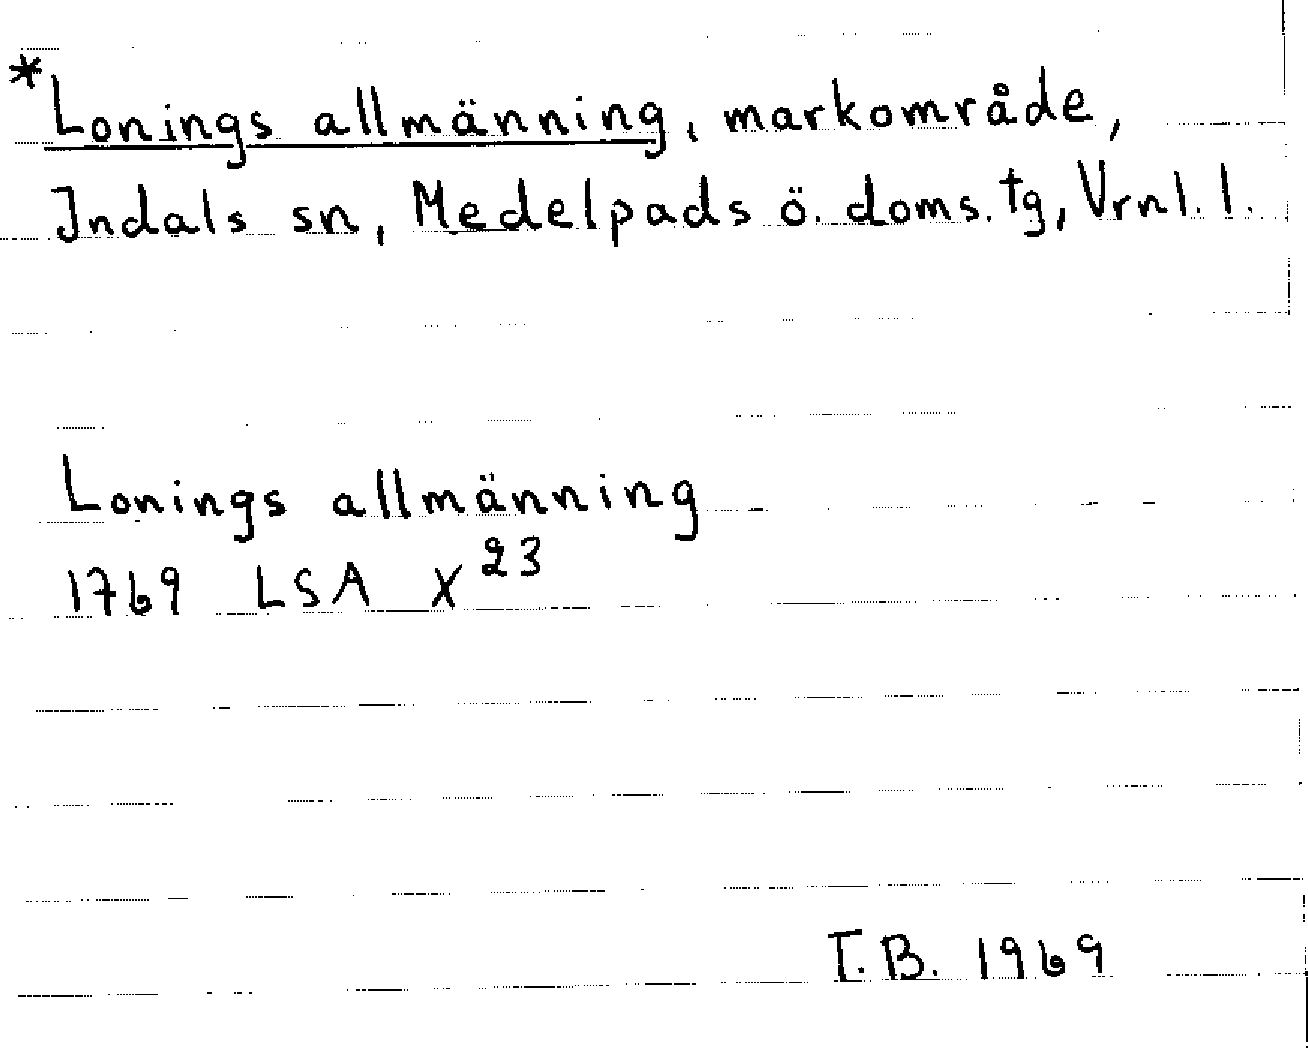 *Lonings allmänning, markområde,
Indals sn, Medelpads ö. doms. tg, Vrnl. l.
Lonings allmänning
1769 LSA X²³
I.B. 1969